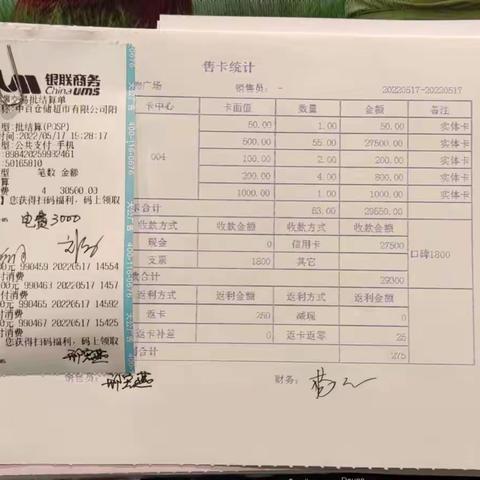 银联商务
Chinaums
交易批结算单
中百仓储超市有限公司阳
型:批结算(POSP)
间:2022/05/17 19:28:17
型:公共支付 手机
:898420259932461
:50165810
型 笔数 金额
算
费 4 30560.03
】您获得扫码福利,码上领取
电费3000
元 990459 20220517 14554
付消费
付消费
元 990465 20220517 14592
付消费
元 990467 20220517 15425
付消费
】您获得扫码福利,码上领取
400-116-0676
售卡统计
物广场 销售员: - 20220517-20220517
卡中心 卡面值 数量 金额 备注
004
50.00 1.00 50.00 实体卡
500.00 55.00 27500.00 实体卡
100.00 2.00 200.00 实体卡
200.00 4.00 800.00 实体卡
1000.00 1.00 1000.00 实体卡
合计 63.00 29550.00
收款方式 收款金额 收款方式 收款金额
现金 0 信用卡 27500
支票 1800 其它
口碑1800
合计 29300
返利方式 返利金额 返利方式 返利金额
返卡 250 返现 0
返卡补差 0 返卡返零 25
合计 275
销售员: 财务: